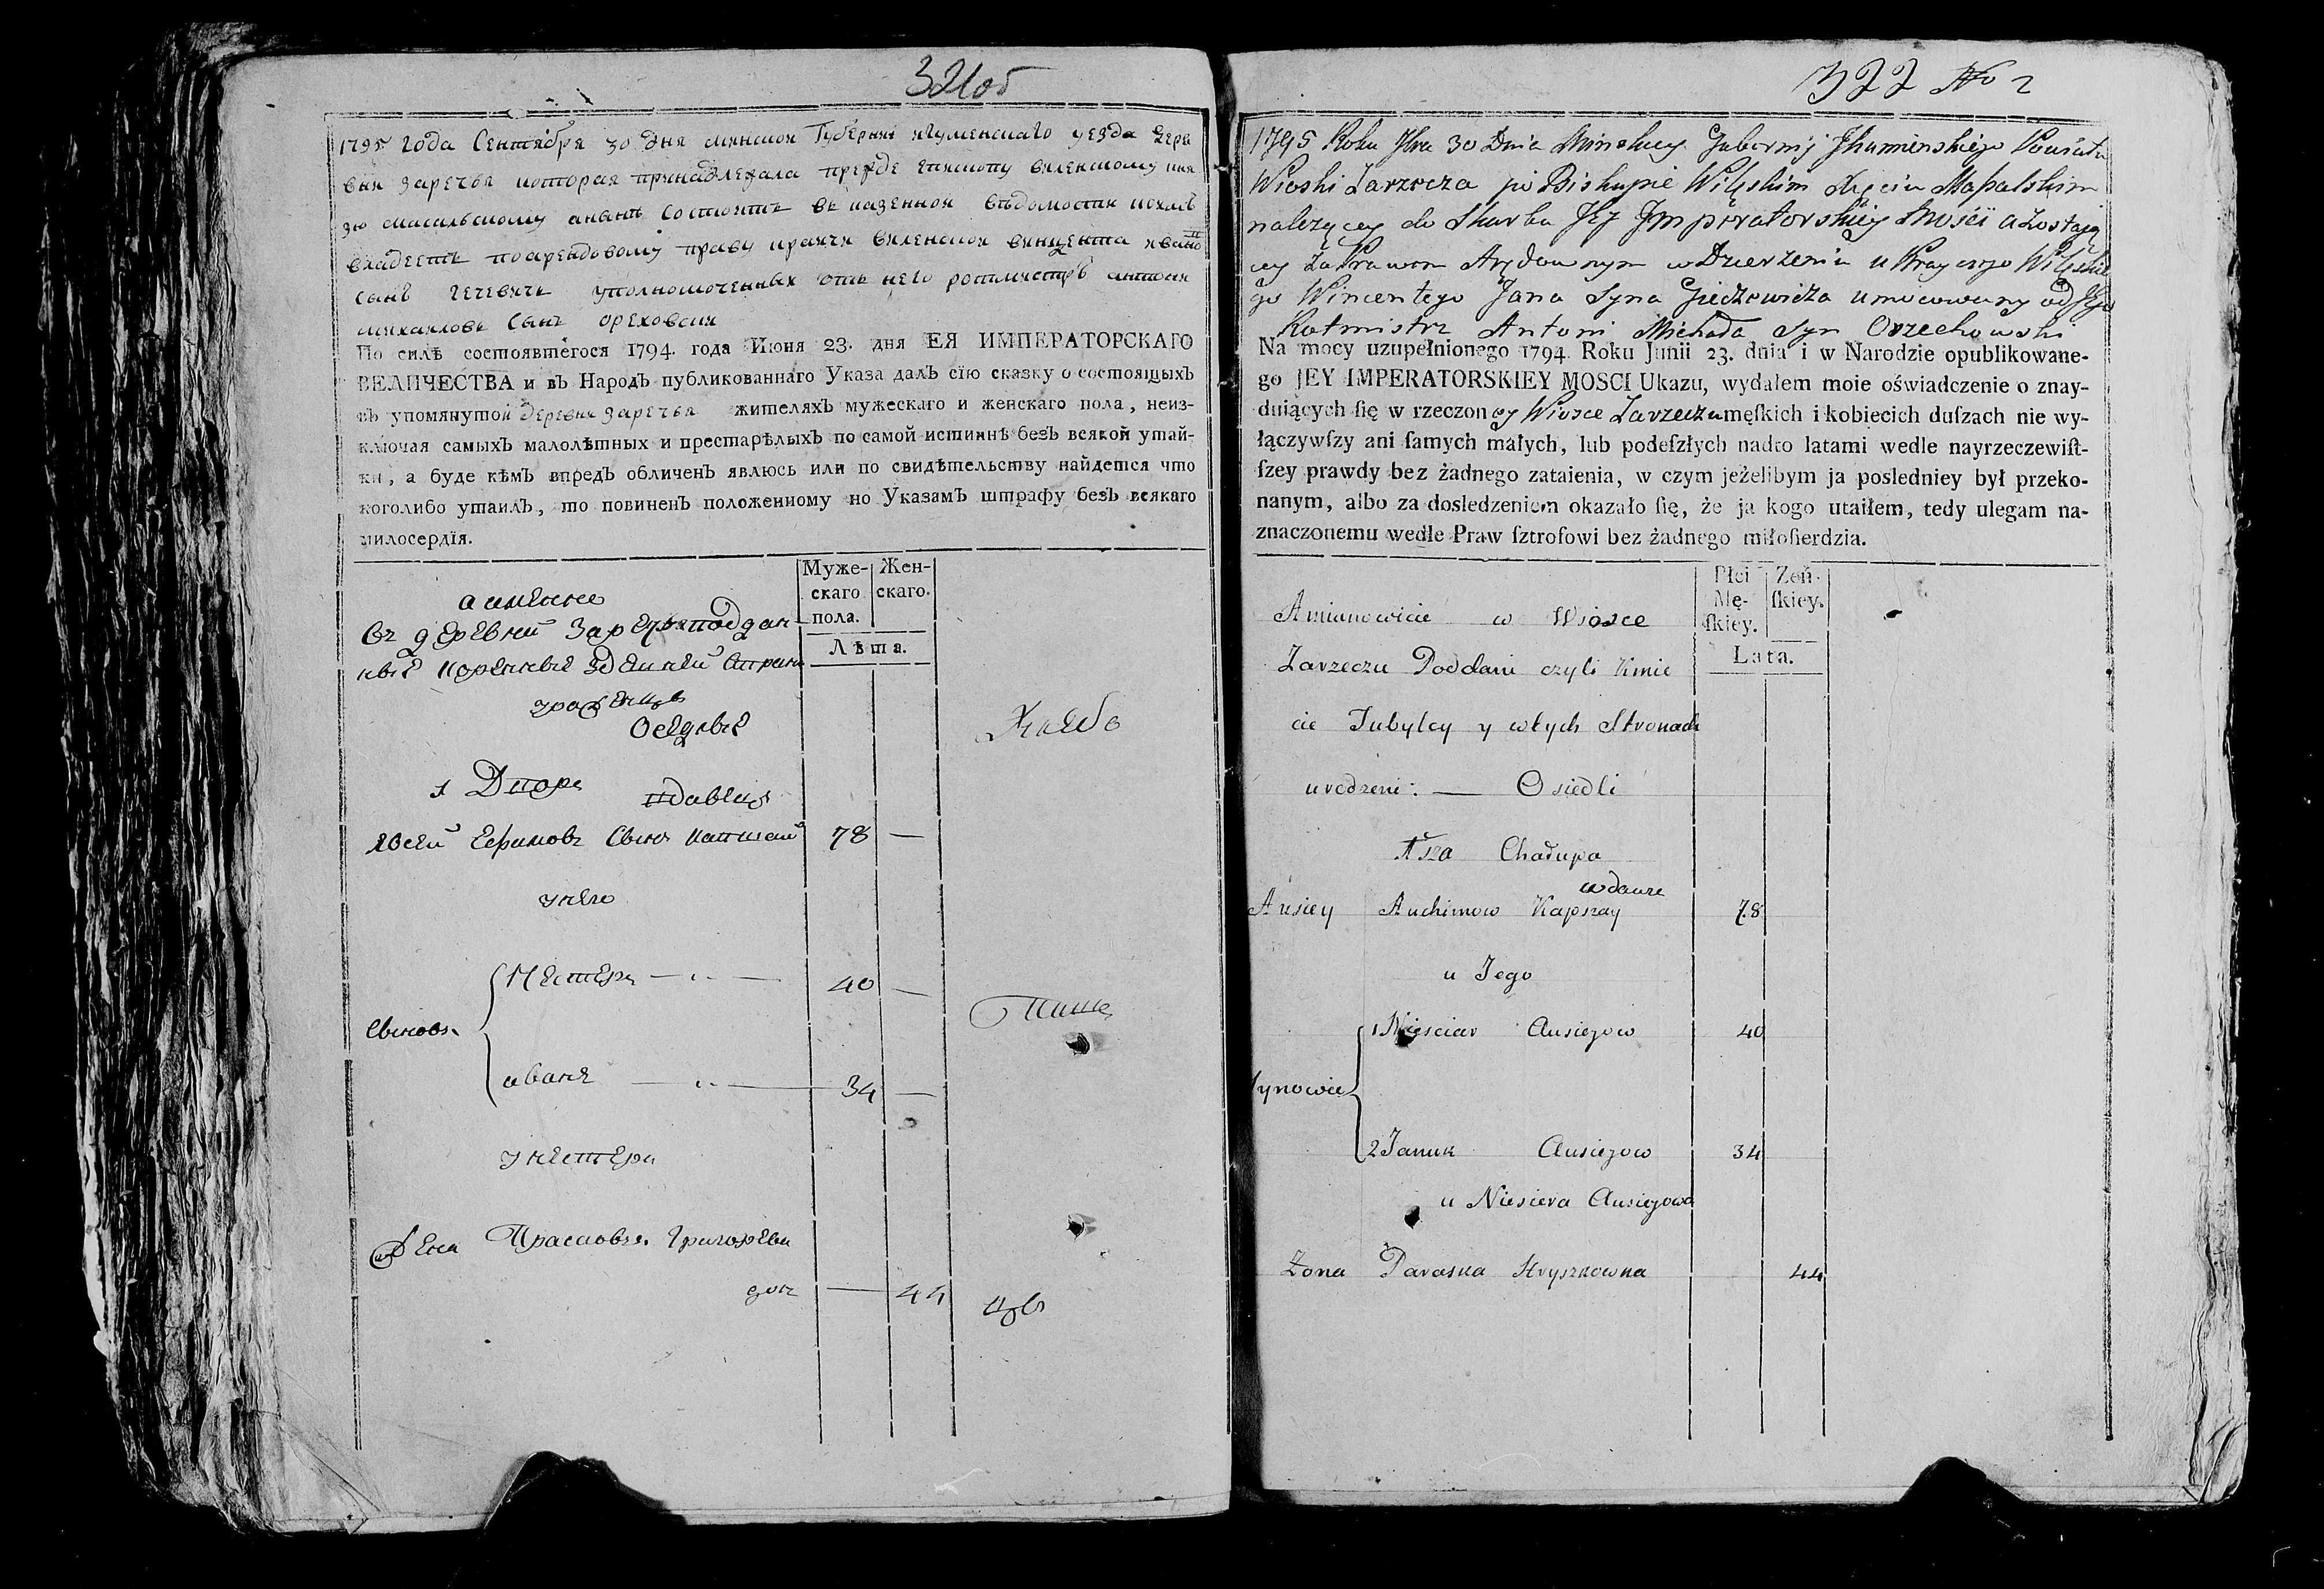 321об
1795 года Сентября 30 дня минской Губернии игуменскаго уезда дере
вни заречья которая принадлежала прежде епископу виленскому кня
зю масальскому а ныне состоитъ въ казенной ведомости
владеетъ по арендовому праву крайчи виленской винцента ивано
сынъ гечевичъ уполномоченных отъ него ротмистръ антони
михайловъ сынъ ореховски
По силѣ состоявшегося 1794. года Июня 23. дня ЕЯ ИМПЕРАТОРСКАГО
ВЕЛИЧЕСТВА и въ Народъ публикованнаго Указа далъ сїю сказку о состоящыхъ
въ упомянутой деревни заречья жителяхъ мужескаго и женскаго пола, неиз-
ключая самыхъ малолѣтныхъ и престарѣлыхъ по самой истиннѣ безъ всякой утай-
ки, а буде кѣмъ впредъ обличенъ явлюсь или по свидѣтельству найдется что
коголибо утаилъ, то повиненъ положенному по Указамъ штрафу безъ всякаго
милосердїя.
Муже-
скаго
пола.
Жен-
скаго.
Лѣта.
а именно
въ деревни Заречья поддан
ные коренные здешней стран
уроженцы
Оседлые
1 Дворъ
вдовецъ
Евсей Ефимовъ Сынъ капшай 78 —
у него
Сыновья
Нестеръ 40 —
иванъ 34 —
у нестера
жена Прасковья Григорьева
доч — 44
322 No 2
1795 Roku 7bra 30 Dnia Minskiey Gubernij Jhumenskiego Powiatu
Wioski Zarzecza po Biskupie Wileskim Xięciu Massalskim
nalezącey do Skarbu Jey Jmperatorskiey Mości a zostaią
cey za Prawem Arędownym w Dzierzeniu u Krayczego Wileskie
go Wincentego Jana Syna Gieczewicza umocowany od Jego
Rotmistrz Antoni Michała Syn Orzechowski
Na mocy uzupełnionego 1794. Roku Junii 23. dnia i w Narodzie opublikowane-
go JEY IMPERATORSKIEY MOSCI Ukazu, wydałem moie oświadczenie o znay-
duiących ſię w rzeczoney Wiosce Zarzeczu męſkich i kobiecich duſzach nie wy-
łączywſzy ani ſamych małych, lub podeſzłych nadto latami wedle nayrzeczewiſt-
ſzey prawdy bez żadnego zataienia, w czym jeżelibym ja posledniey był przeko-
nanym, albo za dosledzeniem okazało ſię, że ja kogo utaiłem, tedy ulegam na-
znaczonemu wedle Praw ſztrofowi bez żadnego miłoſierdzia.
Płci
Mę-
ſkiey.
Żeń-
ſkiey.
Lata.
Amianowicie w Wiosce
Zarzeczu Poddani czyli Kmie
cie Tubylcy y wtych Stronach
urodzeni: — Osiedli
1sza Chałupa
wdawiec
Ausiey Auchimow Kapszay 78
u Jego
Synowie
1 Niesciar Ausiejow 40
2 Januk Ausiejow 34
u Niesciera Ausiejowa
Żona Paraska Hryszkowna 44